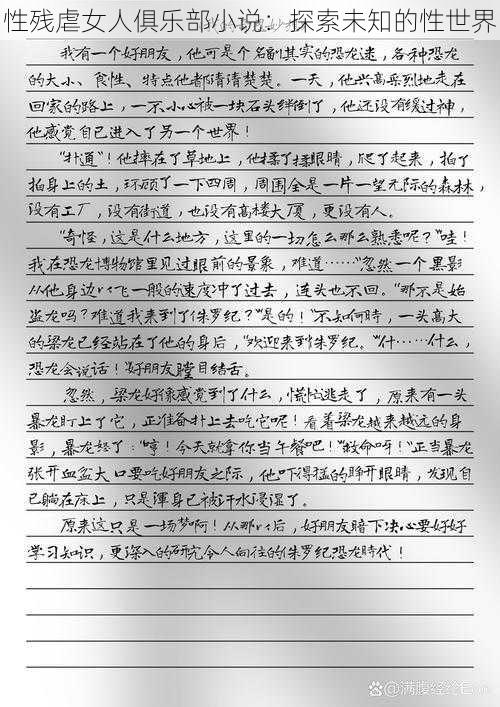 性残虐女人俱乐部小说：探索未知的性世界
我有一个好朋友，他可是个名副其实的恐龙迷，各种恐龙
的大小、食性、特点他都清清楚楚。一天，他兴高采烈地走在
回家的路上，一不小心被一块石头绊倒了，他还没有缓过神，
他感觉自己进入了另一个世界！
“扑通”！他摔在了草地上，他揉了揉眼睛，爬了起来，拍了
拍身上的土，环顾了一下四周，周围全是一片一望无际的森林，
没有工厂，没有街道，也没有高楼大厦，更没有人。
“奇怪，这是什么地方，这里的一切怎么那么熟悉呢？”哇！
我在恐龙博物馆里见过眼前的景象，难道……”忽然一个黑影
从他身边以飞一般的速度冲了过去，连头也不回。“那不是始
盗龙吗？难道我来到了侏罗纪？”“是的！”不知何时，一头高大
的梁龙已经站在了他的身后，“欢迎来到侏罗纪。”“什……什么，
恐龙会说话！”好朋友瞠目结舌。
忽然，梁龙好像感觉到了什么，慌忙逃走了，原来有一头
暴龙盯上了它，正准备扑上去吃它呢！看着梁龙越来越远的身
影，暴龙怒了：“哼！今天就拿你当午餐吧！”“救命呀！”正当暴龙
张开血盆大口要吃好朋友之际，他吓得猛的睁开眼睛，发现自
己躺在床上，只是浑身已被汗水浸湿了。
原来这只是一场梦啊！从那以后，好朋友暗下决心要好好
学习知识，更深入的研究令人向往的侏罗纪恐龙时代！
知乎 @满腹经纶